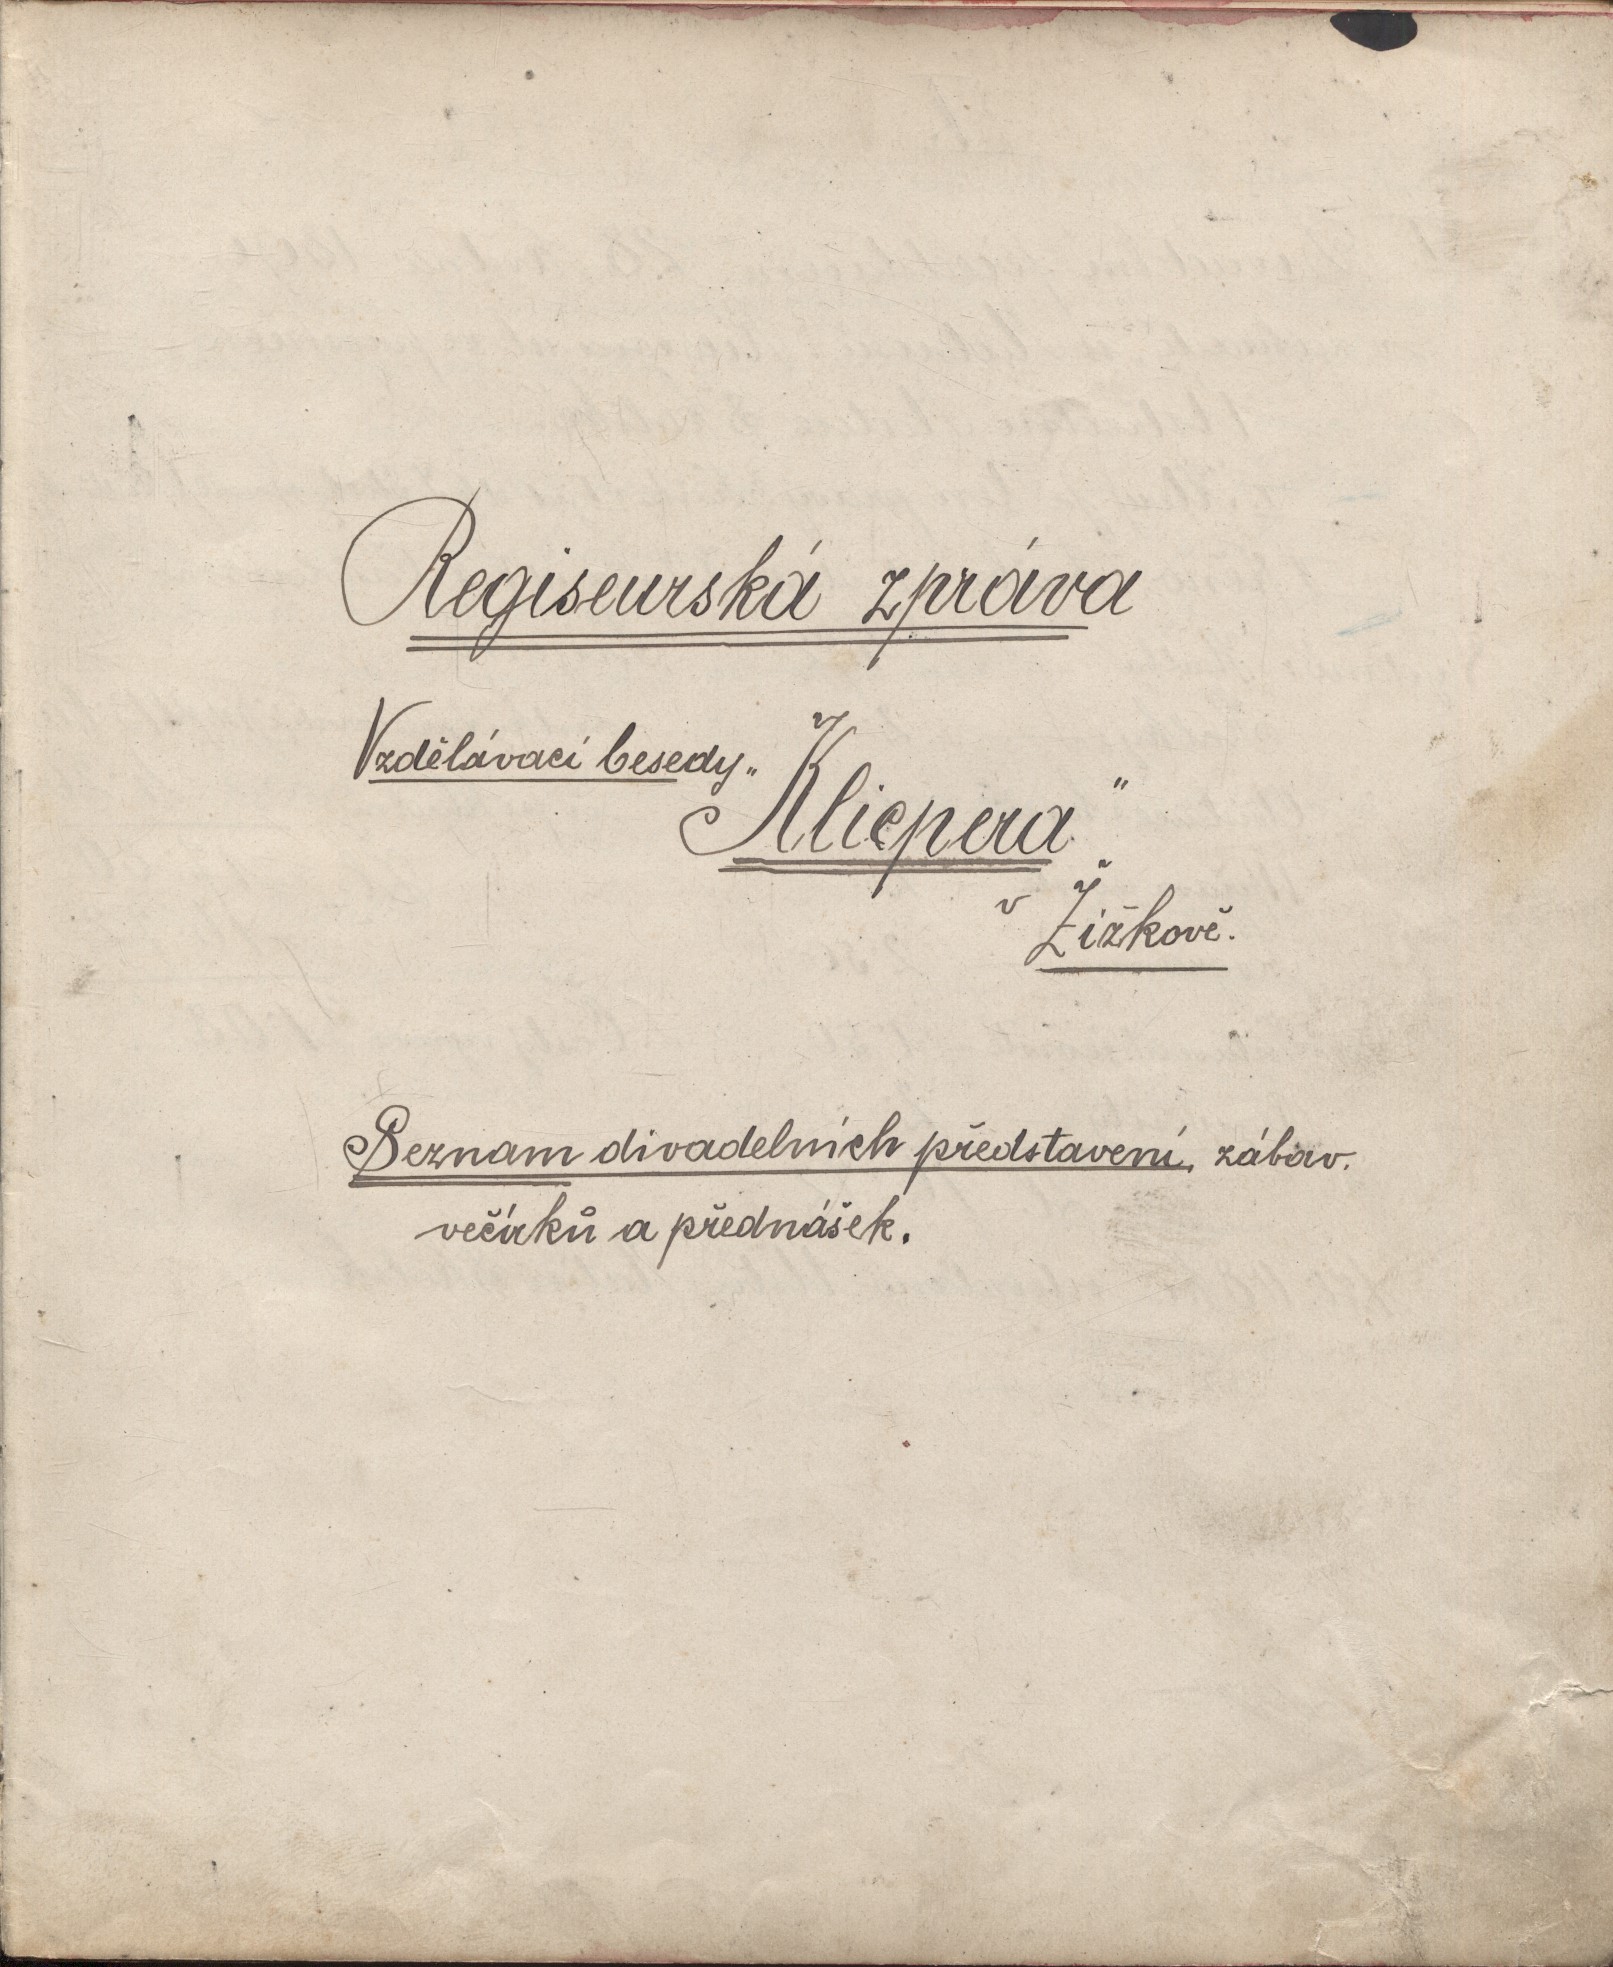 Regiseurská zpráva
Vzdělávací besedy „
Klicpera"
v Žižkově.
Seznam divadelních představení, zábav.
večírků a přednášek.